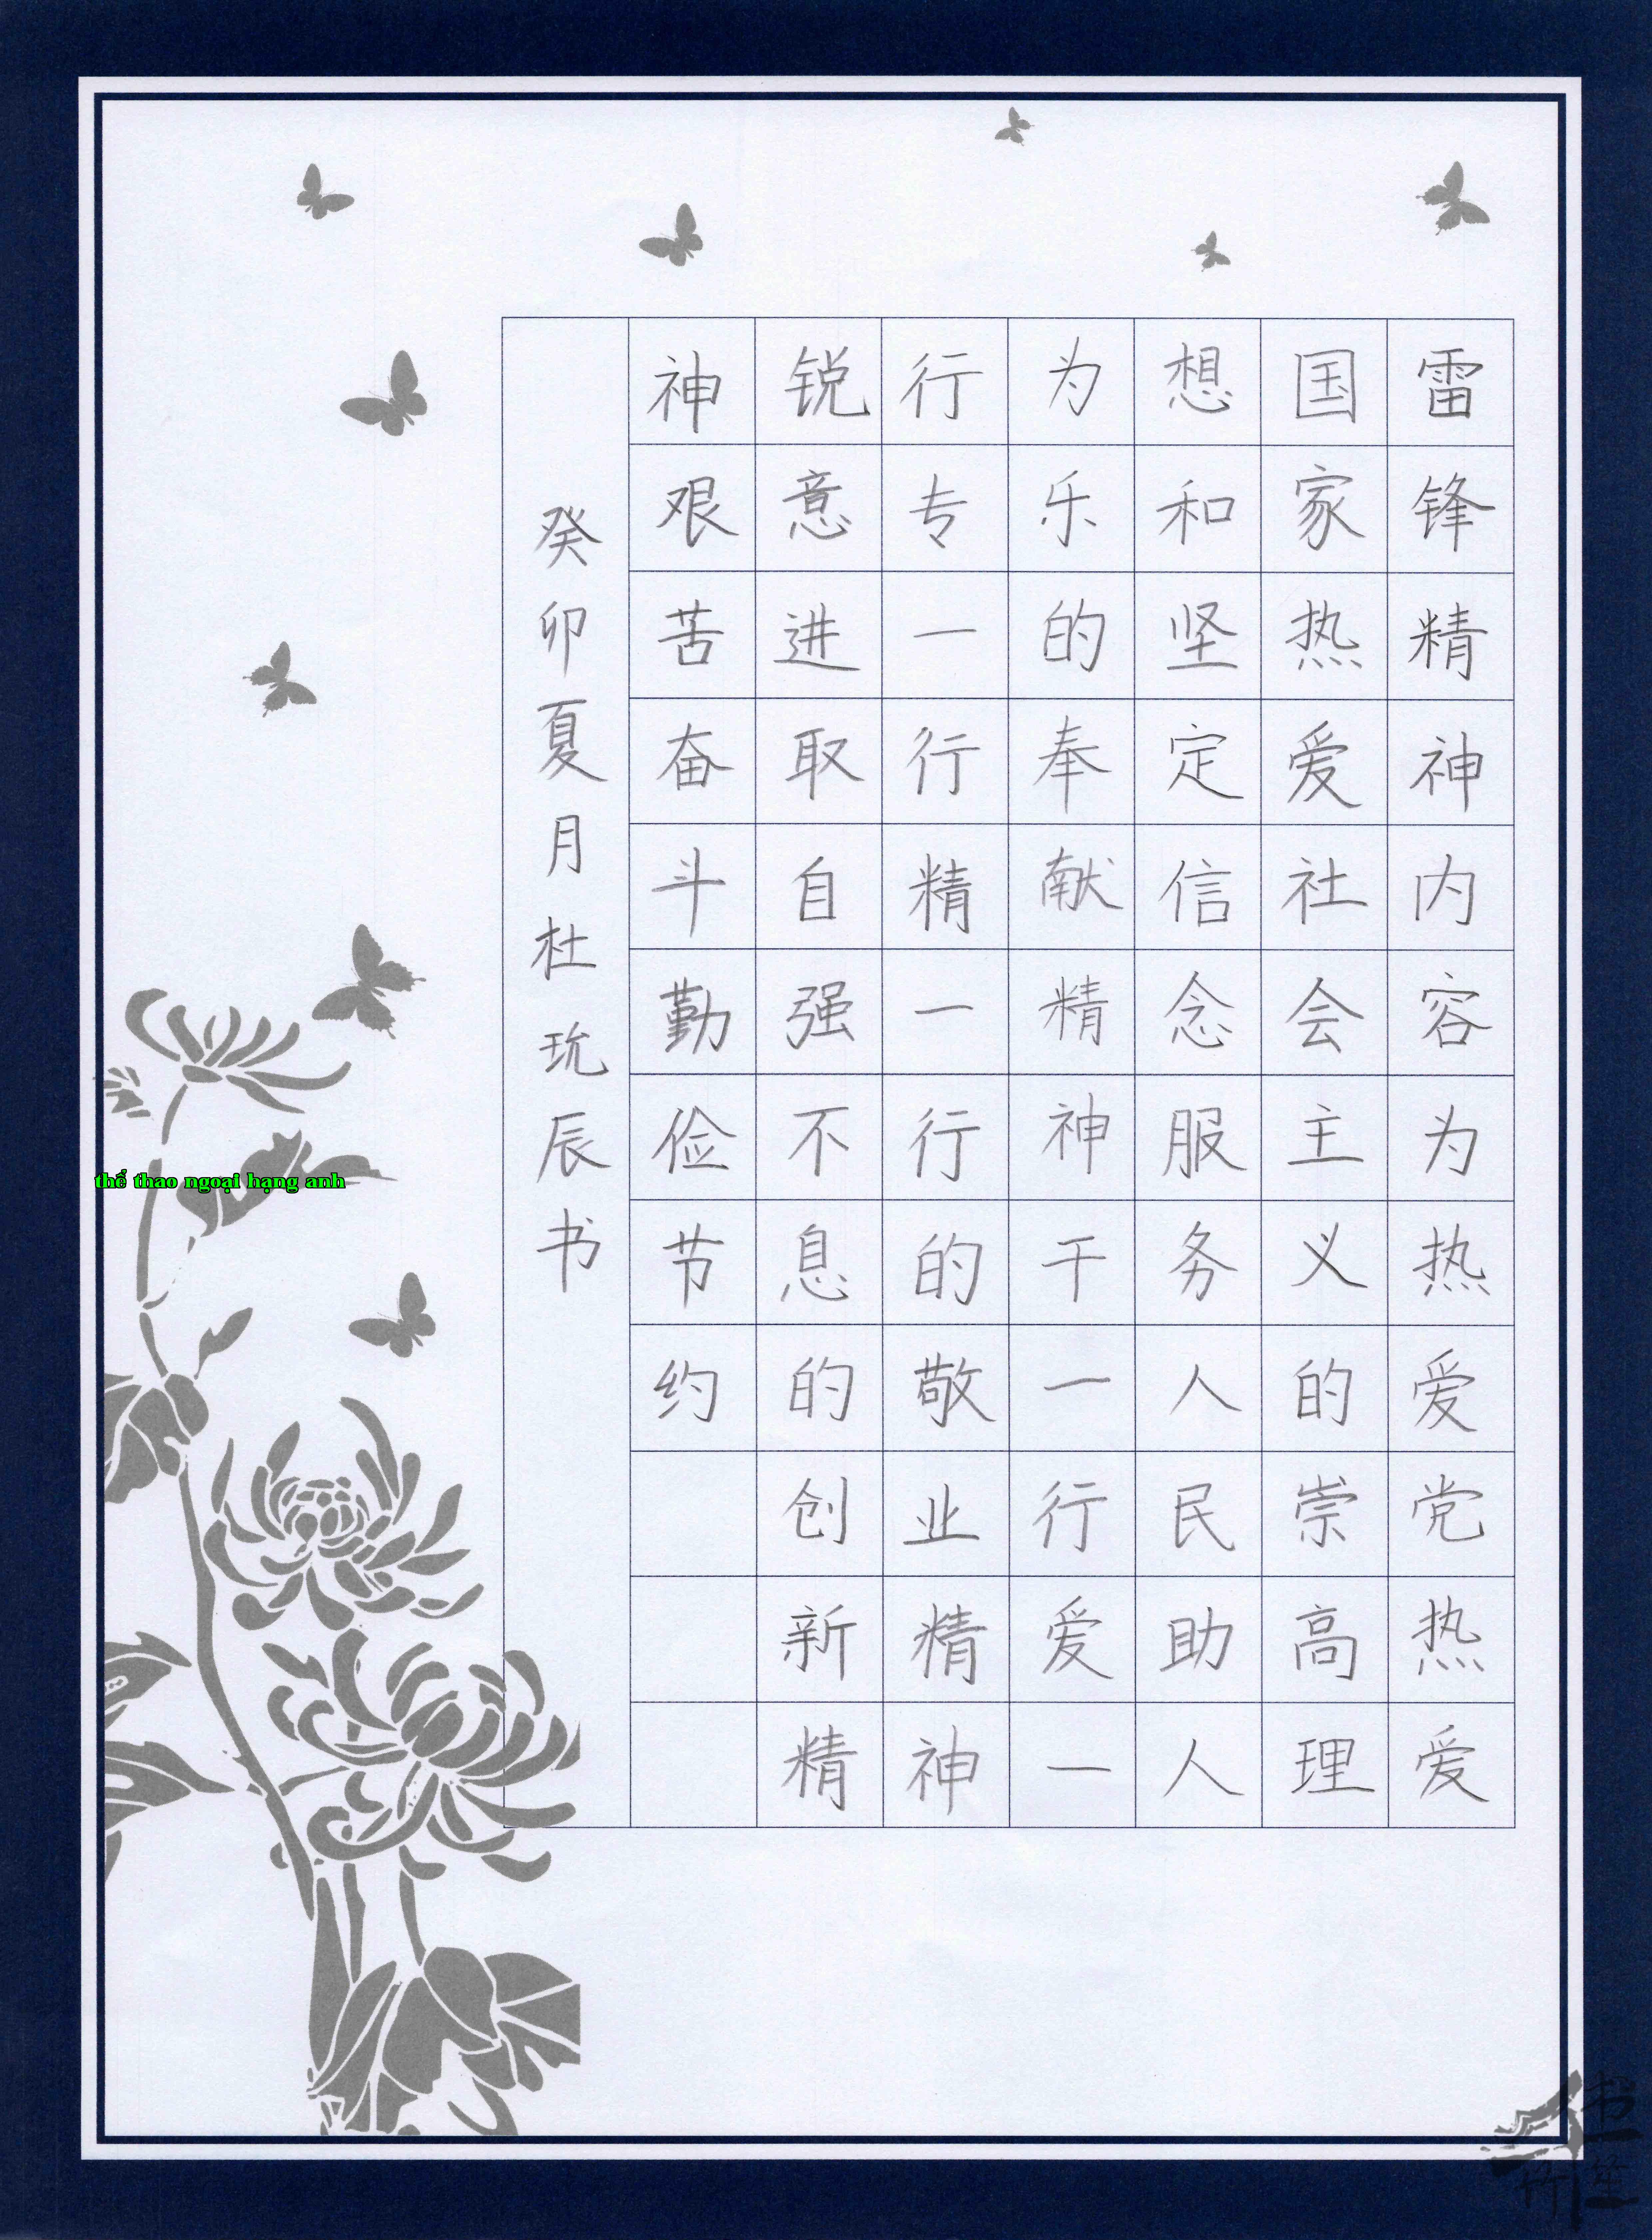 雷锋精神内容为热爱党热爱
国家热爱社会主义的崇高理
想和坚定信念服务人民助人
为乐的奉献精神干一行爱一
行专一行精一行的敬业精神
锐意进取自强不息的创新精
神艰苦奋斗勤俭节约
癸卯夏月杜玧辰书
thể thao ngoại hạng anh